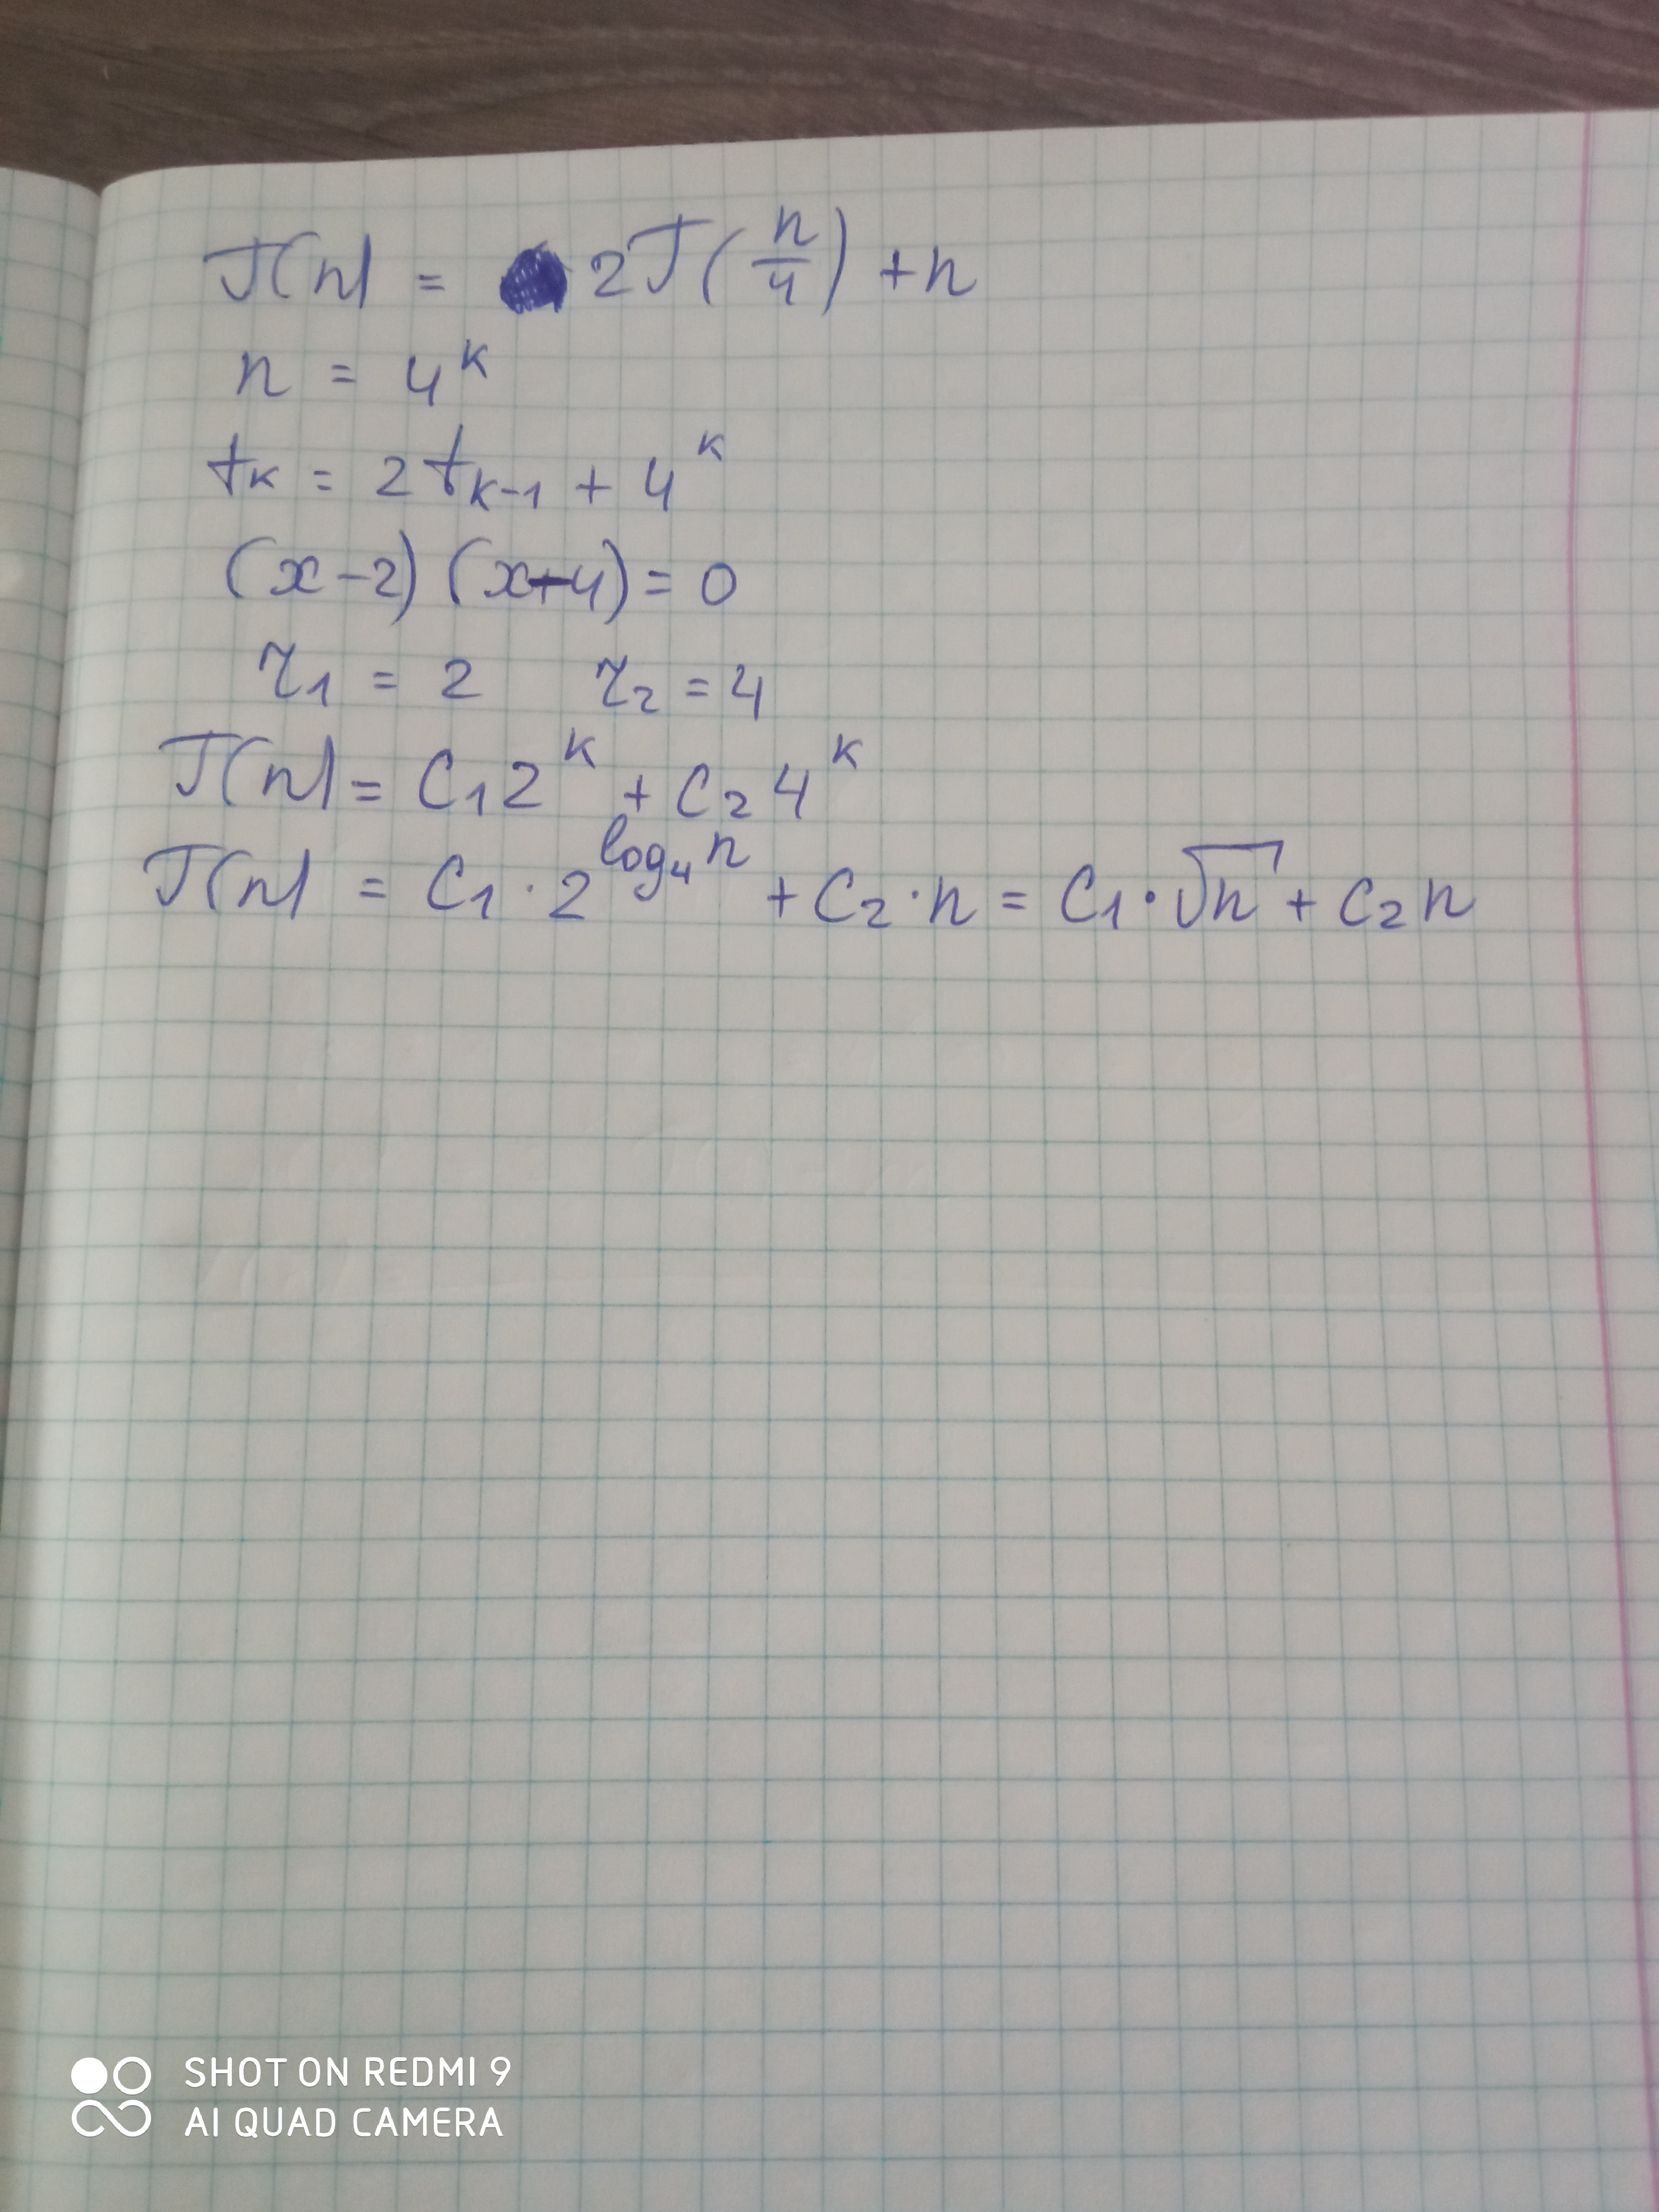 T(n) = 2T(n/4) + n
n = 4^k
t_k = 2t_{k-1} + 4^k
(x-2)(x-4) = 0
r_1 = 2 r_2 = 4
T(n) = C_1 2^k + C_2 4^k
T(n) = C_1 · 2^{log_4 n} + C_2 · n = C_1 · √n + C_2 n
SHOT ON REDMI 9
AI QUAD CAMERA